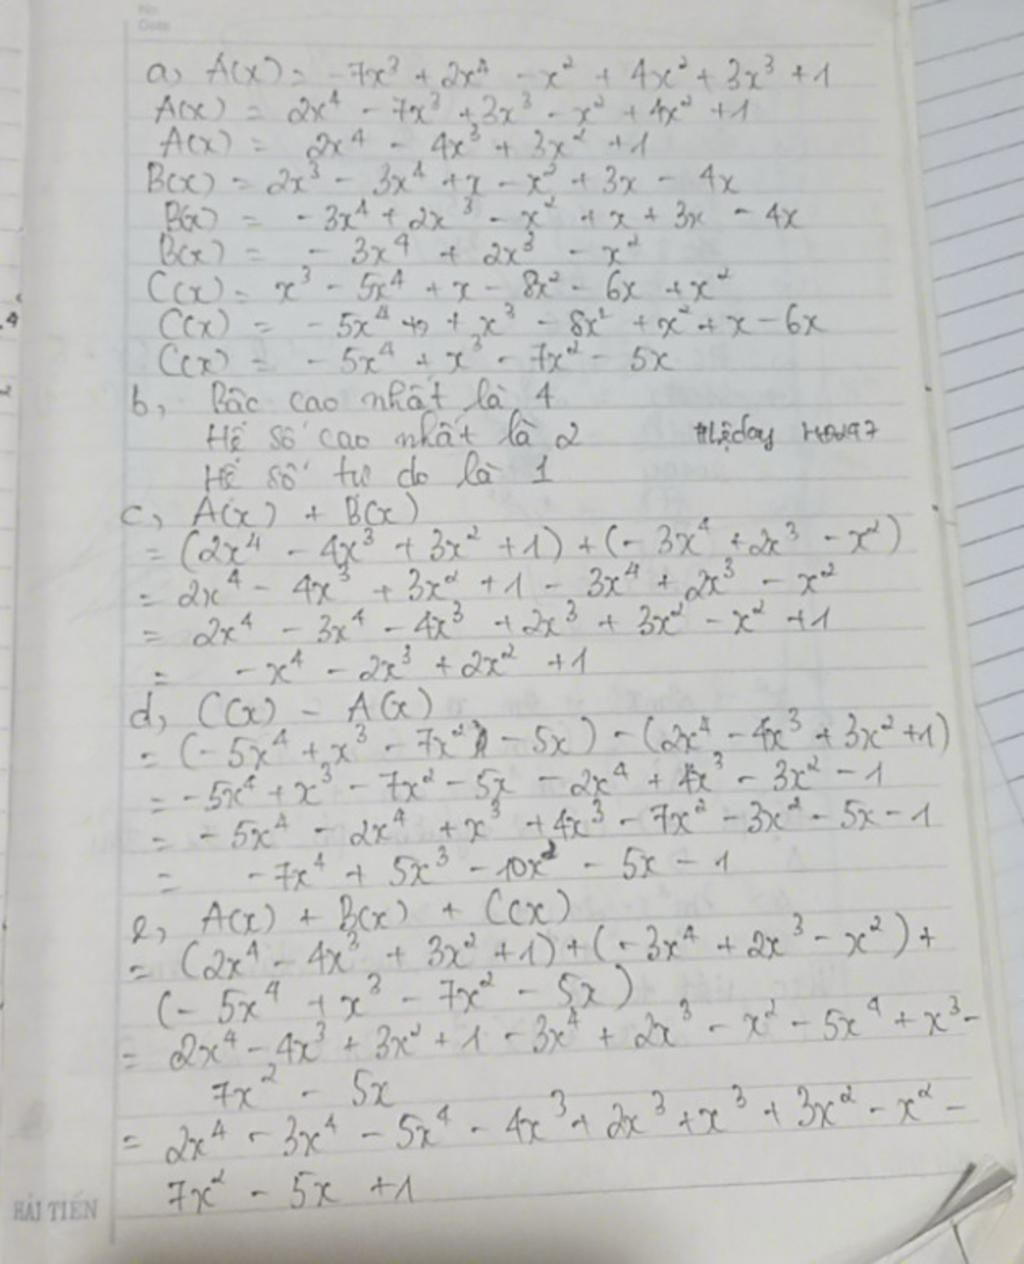 No
Date
a, A(x) = -7x³ + 2x⁴ - x² + 4x² + 3x³ + 1
A(x) = 2x⁴ - 7x³ + 3x³ - x² + 4x² + 1
A(x) = 2x⁴ - 4x³ + 3x² + 1
B(x) = 2x³ - 3x⁴ + x - x² + 3x - 4x
B(x) = - 3x⁴ + 2x³ - x² + x + 3x - 4x
B(x) = - 3x⁴ + 2x³ - x²
C(x) = x³ - 5x⁴ + x - 8x² - 6x + x²
C(x) = - 5x⁴ + x³ - 8x² + x² + x - 6x
C(x) = - 5x⁴ + x³ - 7x² - 5x
b, Bậc cao nhất là 4
Hệ số cao nhất là 2
Hệ số tự do là 1
c, A(x) + B(x)
= (2x⁴ - 4x³ + 3x² + 1) + (- 3x⁴ + 2x³ - x²)
= 2x⁴ - 4x³ + 3x² + 1 - 3x⁴ + 2x³ - x²
= 2x⁴ - 3x⁴ - 4x³ + 2x³ + 3x² - x² + 1
= - x⁴ - 2x³ + 2x² + 1
d, C(x) - A(x)
= (- 5x⁴ + x³ - 7x² - 5x) - (2x⁴ - 4x³ + 3x² + 1)
= - 5x⁴ + x³ - 7x² - 5x - 2x⁴ + 4x³ - 3x² - 1
= - 5x⁴ - 2x⁴ + x³ + 4x³ - 7x² - 3x² - 5x - 1
= - 7x⁴ + 5x³ - 10x² - 5x - 1
e, A(x) + B(x) + C(x)
= (2x⁴ - 4x³ + 3x² + 1) + (- 3x⁴ + 2x³ - x²) +
(- 5x⁴ + x³ - 7x² - 5x)
= 2x⁴ - 4x³ + 3x² + 1 - 3x⁴ + 2x³ - x² - 5x⁴ + x³ -
7x² - 5x
= 2x⁴ - 3x⁴ - 5x⁴ - 4x³ + 2x³ + x³ + 3x² - x² -
7x² - 5x + 1
HẢI TIẾN